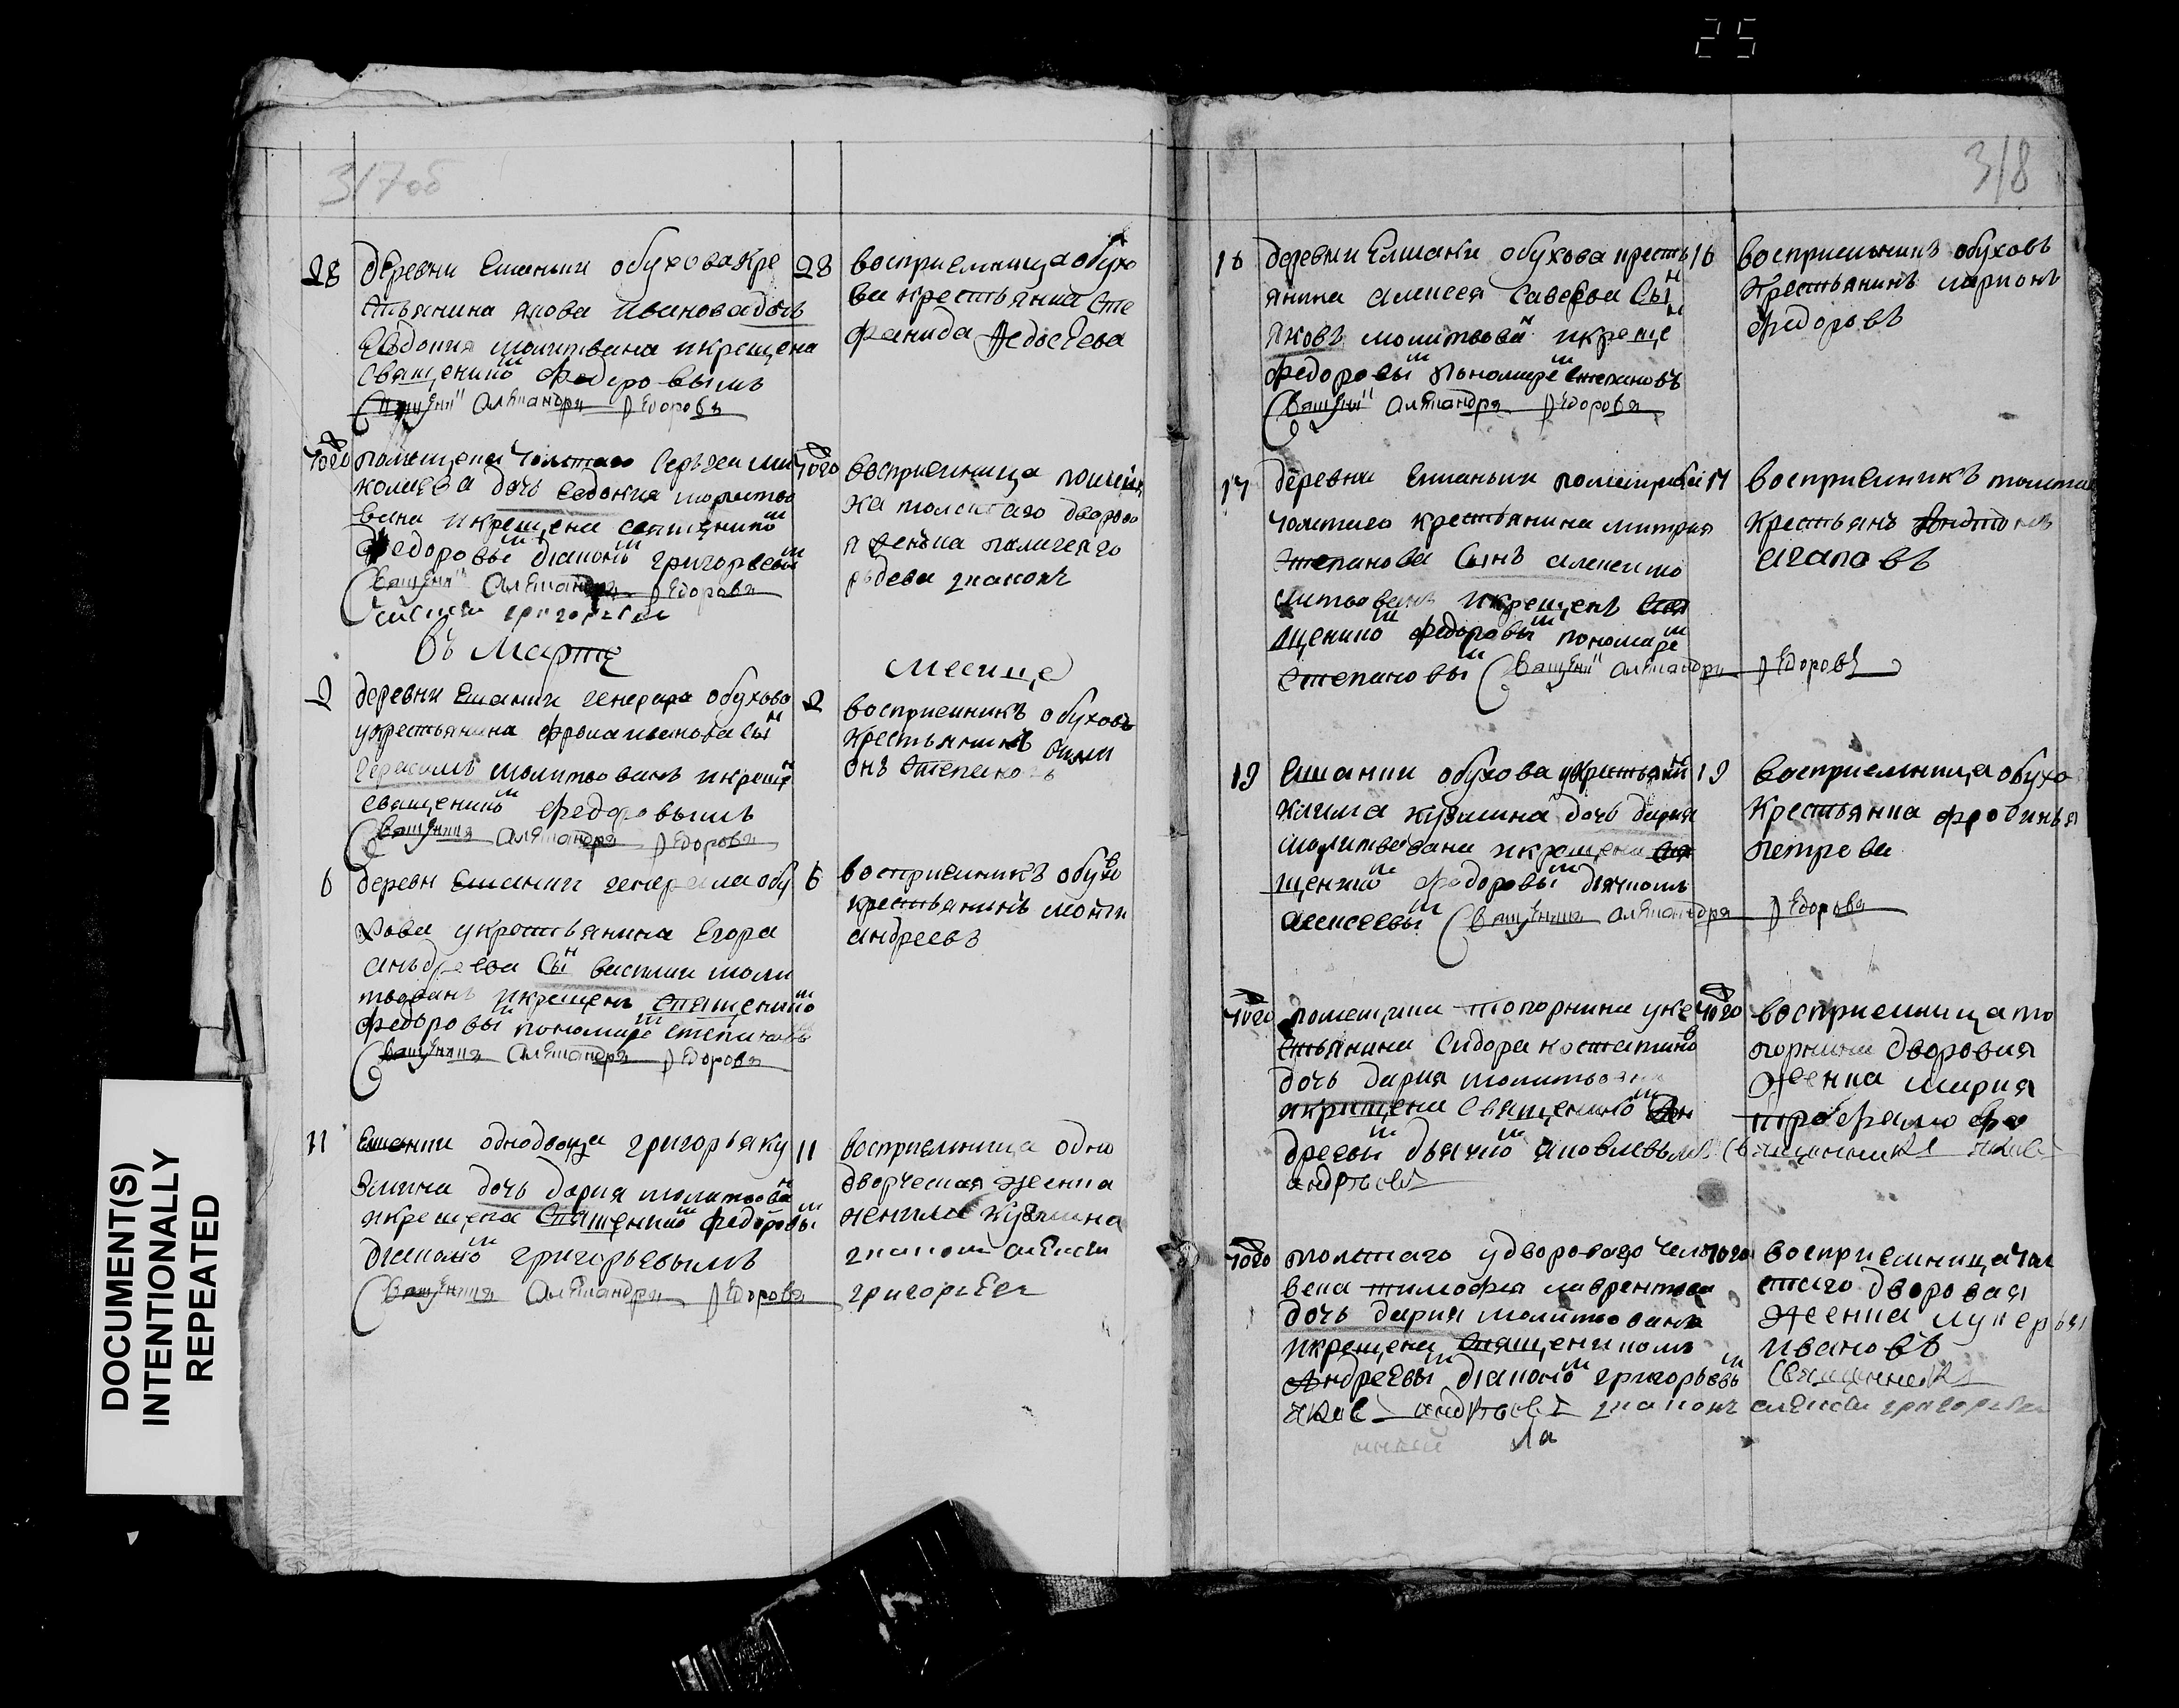 25
317об
28 деревни Ешанки обухова кре
стьянина якова Иванова дочь
Евдокия молитвана икрещена
священико федоровымъ
Священи Алеѯандръ Ѳедоровъ
28 восприемница обухо
ва крестьянка Сте
фанида Федосеева
того помещека толстаго Сергея ни
колаева дочь Евдокия молитво
вана икрещена священико
федоровы диакомъ григорьевы
Священи Алеѯандръ Ѳедоровъ
алеѯеи григорьевъ
того восприемница помещи
ка толстаго дворово
рьдева диаконъ
въ Марте
Месяце
2 деревни Ешанки генерара обухова
укрестьянина фрола иванова Сы
Герасимъ молитвованъ икреще
священико федоровымъ
Священикъ Алеѯандръ Ѳедоровъ
2 восприемникъ обуховъ
крестьянинъ Сими
онъ Степановъ
6 деревн Ешанки генерала обу
хова укрестьянина Егора
андреева Сы василии моли
твованъ икрещенъ священико
федоровы пономаре степановы
Священикъ Алеѯандръ Ѳедоровъ
6 восприемникъ обухо
крестьянинъ
андреевъ
11 Ешанки однодворца григорья ку
змина дочь дария молитвова
икрещена Священико федоровы
диаконо григорьевымъ
Священикъ Алеѯандръ Ѳедоровъ
11 восприемница одно
дворческая женка
кузмина
диаконъ алеѯеи
григорьевъ
318
16 деревни Ешаки обухова кресть
янина алексея Савельева Сы
Яковъ молитвова икреще
федоровы пономаре степановъ
Священи Алеѯандръ Ѳедоровъ
16 восприемникъ обуховъ
крестьянинъ ларионъ
федоровъ
17 деревни Ешанки помещика
толстаго крестьянина митрия
Степанова Сынъ алексеи мо
литвованъ икрещенъ свя
щенико федоровы пономаре
степановы Священи Алеѯандръ Ѳедоровъ
17 восприемникъ толста
крестьянъ
агаповъ
19 Ешанки обухова укрестьяни
клима кузмина дочь дария
молитвована икрещена свя
щенико федоровы дьячкомъ
алексеевы Священикъ Алеѯандръ Ѳедоровъ
19 восприемница обухо
крестьянка фровинья
петрова
того помещика топорнина укре
стьянина Сидора костатино
дочь дария молитвована
икрищена священико Ан
дреевы дьячко яковлевымъ Священникъ яковъ
андреевъ
того восприемница то
порнина дворовая
женка мария
трофимо
того толстаго удвороваго чело
века тимофея лаврентева
дочь дария молитвована
икрещена священикомъ
Андреевы диаконо григорьевы
яковъ андреевъ диаконъ алеѯеи григорьевъ
того восприемница тол
стаго дворовая
женка лукерья
ивановъ
Священникъ
ла
DOCUMENT(S)
INTENTIONALLY
REPEATED